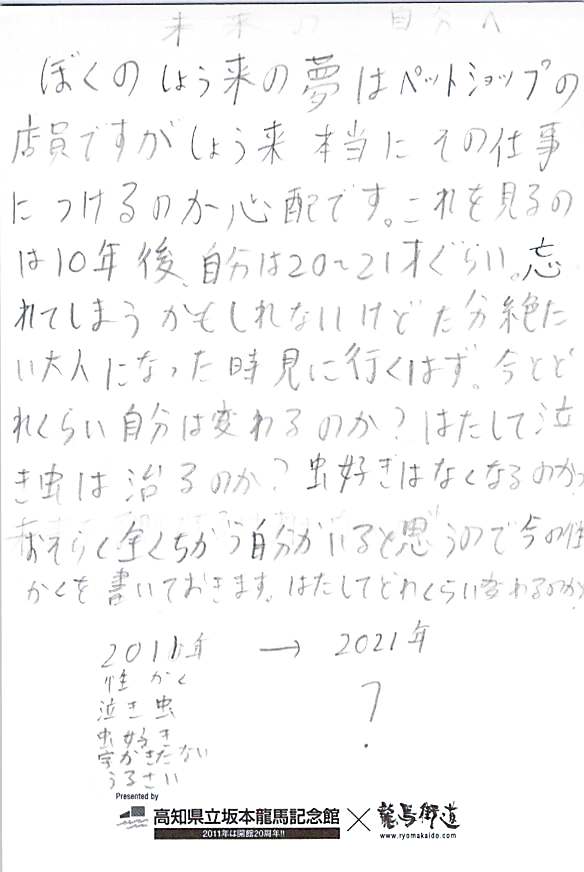 未来の自分へ
ぼくのしょう来の夢はペットショップの
店員ですがしょう来本当にその仕事
につけるのか心配です。これを見るの
は10年後、自分は20~21才ぐらい。忘
れてしまうかもしれないけどた分絶た
い大人になった時見に行くはず。今とど
れくらい自分は変わるのか?はたして泣
き虫は治るのか?虫好きはなくなるのか?
おそらく全くちがう自分がいると思うので今の性
かくを書いておきます。はたしてどれくらい変わるのか?
2011年 → 2021年
性かく
泣き虫
虫好き
字がきたない
うるさい
?
Presented by
高知県立坂本龍馬記念館 × 龍馬街道
2011年は開館20周年!!
www.ryomakaido.com